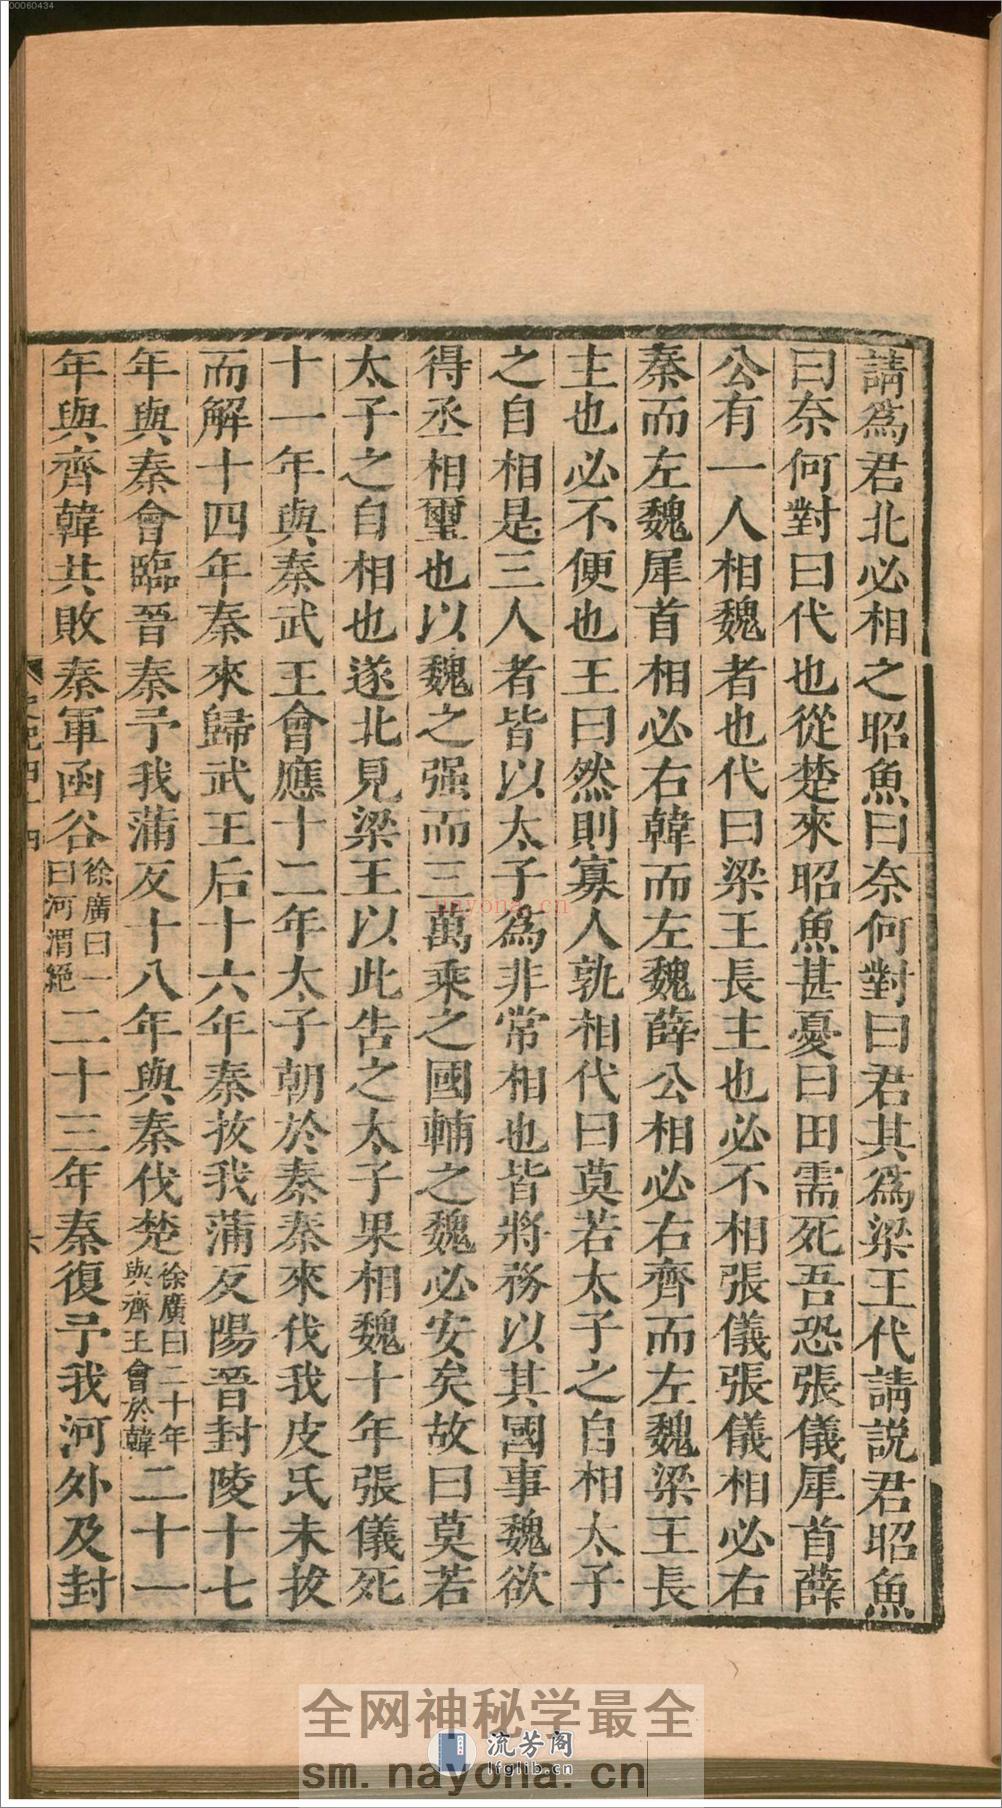 00060434
請爲君北必相之昭魚曰奈何對曰君其爲梁王代請説君昭魚
曰奈何對曰代也從楚來昭魚甚憂曰田需死吾恐張儀犀首薛
公有一人相魏者也代曰梁王長主也必不相張儀張儀相必右
秦而左魏犀首相必右韓而左魏薛公相必右齊而左魏梁王長
主也必不便也王曰然則寡人孰相代曰莫若太子之自相太子
之自相是三人者皆以太子爲非常相也皆將務以其國事魏欲
得丞相璽也以魏之强而三萬乘之國輔之魏必安矣故曰莫若
太子之自相也遂北見梁王以此告之太子果相魏十年張儀死
十一年與秦武王會應十二年太子朝於秦秦來伐我皮氏未拔
而解十四年秦來歸武王后十六年秦拔我蒲反陽晉封陵十七
年與秦會臨晉秦予我蒲反十八年與秦伐楚徐廣曰二十年與齊王會於韓二十一
年與齊韓共敗秦軍函谷徐廣曰一曰河渭絕二十三年秦復予我河外及封
nayona.cn
全网神秘学最全
流芳阁
lfglib.cn
sm.nayona.cn